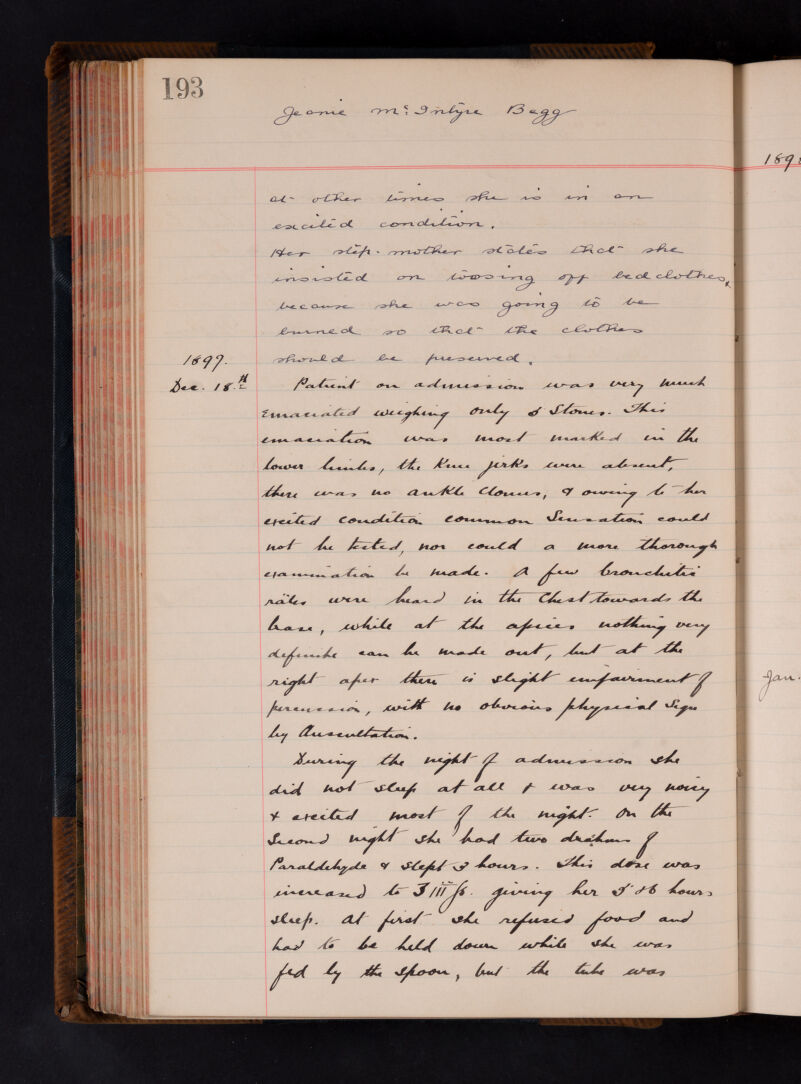 193
Jeanie McIntyre Begg
189
at other times she is in an
excited condition.
Her step-mother states that she
insisted on tossing off bedclothes,
because she was going to be
burned so that the clothes
1897. should be preserved.
Dec. 18th Patient on admission was very much
emaciated weighing only 5 Stones. This
emaciation was most marked in the
lower limbs, the Knee jerks were absent,
there was no ankle clonus, & owing to her
excited condition common Sensation could
not be tested, nor could a more thorough
examination be made. A few bronchitic
râles were heard in the Chest towards the
base, while at the apices nothing very
definite can be made out, but at the
right apex there is slight impairment of
Jan.
percussion, with no obvious physical Sign
by Auscultation.
During the night of admission she
did not sleep at all & was very noisy
& excited most of the night. On the
Second night she had two drachms of
Paraldehyde & slept 3 hours. This dose was
increased to ʒiiiſs. giving her 5 or 6 hours
sleep. At first she refused food and
had to be held down while she was
fed by the spoon, but the tube was